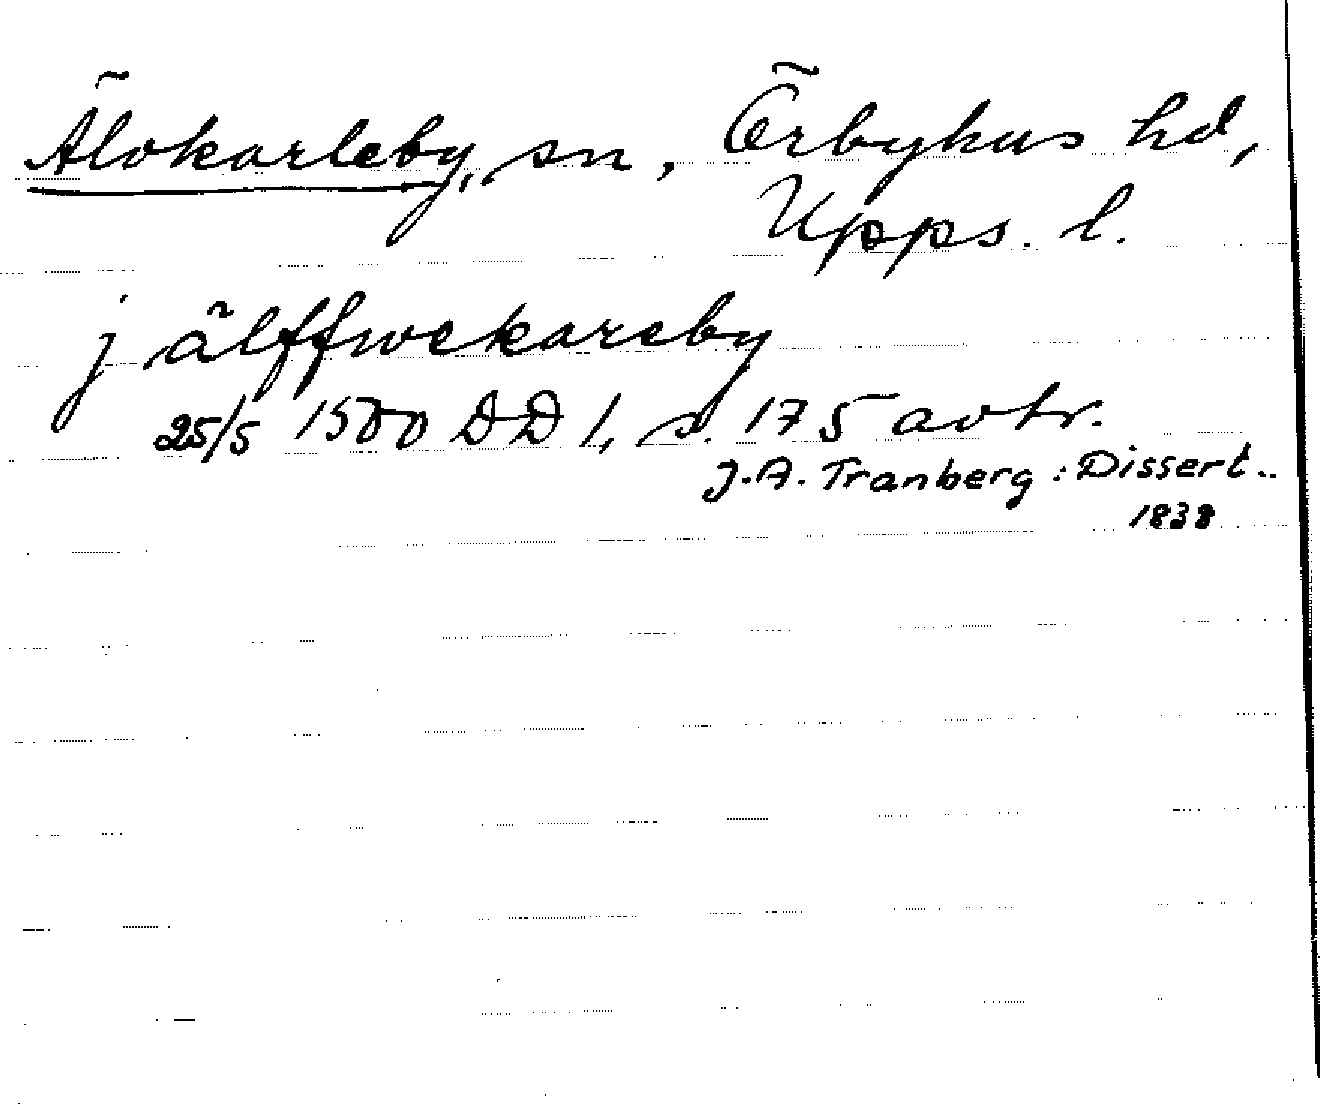 Älvkarleby, sn, Örbyhus hd,
Upps. l.
j älffwekareby
25/5 1500 DD 1, s. 175 avtr.
J.A. Tranberg: Dissert..
1838